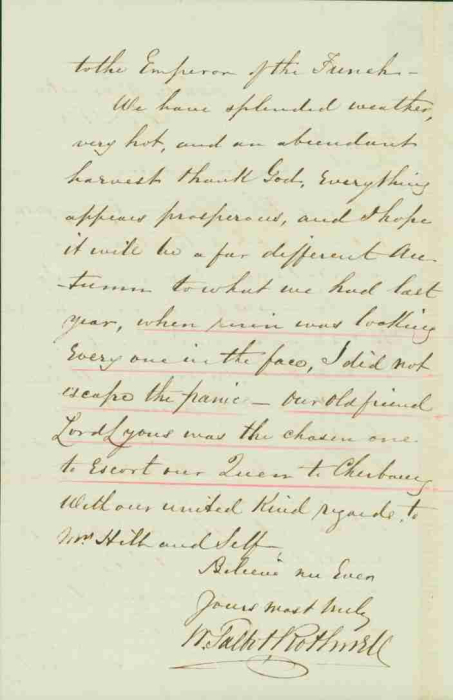 to the Emperor of the French –
We have splended weather,
very hot, and an abundant
harvest thank God, Everything
appears prosperous, and I hope
it will be a far different Au-
-tumn to what we had last
year, when ruin was looking
Every one in the face, I did not
escape the panic – our old friend
Lord Lyons was the chosen one
to Escort our Queen to Cherbourg
With our united Kind regards to
Mrs Hith and Self,
Believe me Ever
Yours most truly
W. Talbot Rothwell